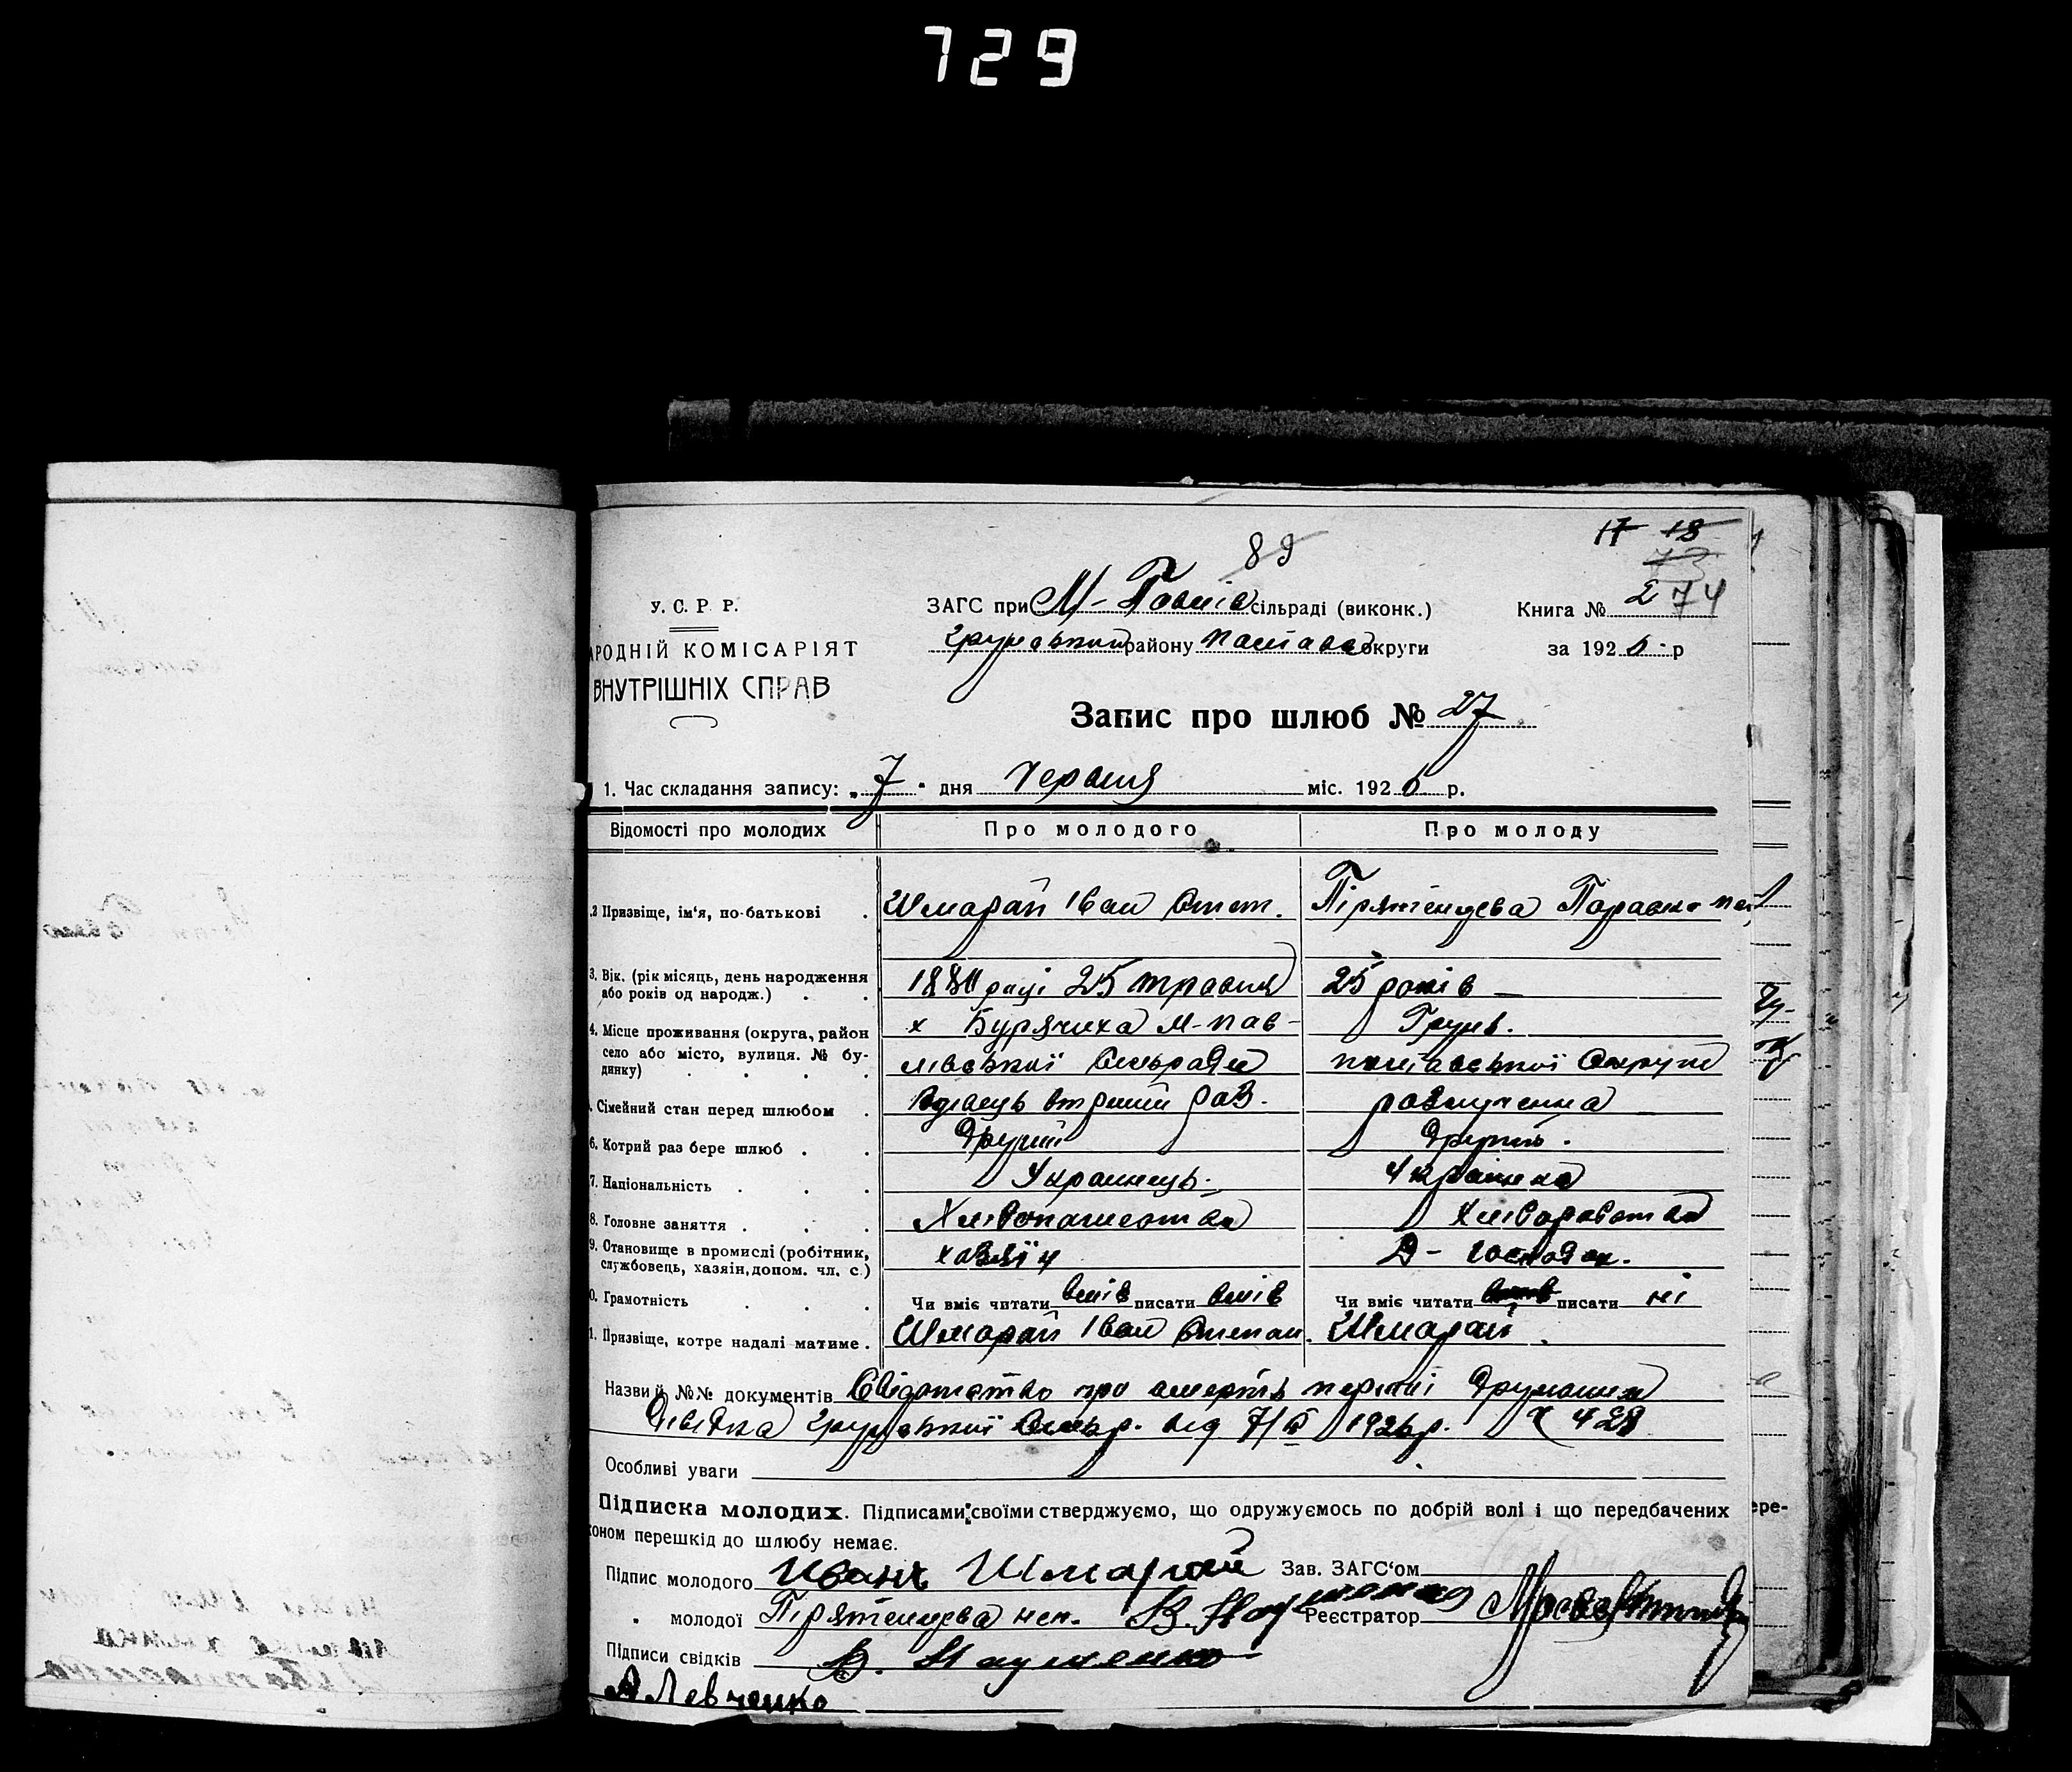 729
17 18
89
73
274
У. С. Р. Р.
ЗАГС при М-Павлів сільраді (виконк.)
Книга №
АРОДНІЙ КОМІСАРІЯТ
Грунський району Полтавс округи
за 1926 р
ВНУТРІШНІХ СПРАВ
Запис про шлюб № 27
1. Час складання запису: „ 7 " дня Червня міс. 1926 р.
Відомості про молодих
Про молодого
Про молоду
2 Призвіще, ім'я, по-батькові .
Шмарай Іван Степ.
Пірятенцева Параска
3. Вік. (рік місяць, день народження або років од народж.) . .
25 травня
25 років —
4. Місце проживання (округа, район село або місто, вулиця. № будинку) . . . .
х Бурячиха М-Павлівської Сільради
Грунь.
полтавської Округи
Сімейний стан перед шлюбом .
Вдівець
розлучена
6. Котрий раз бере шлюб . .
Другий
Другий.
7. Національність . . .
Украинець.
Українка
8. Головне заняття . . .
Хлібопашество
Хлібороботва
9. Становище в промислі (робітник, службовець, хазяін, допом. чл. с.)
хазяїн
Д- господар.
0. Грамотність . . .
Чи вміє читати вмів писати вмів
Чи вміє читати писати ні
1. Призвіще, котре надалі матиме .
Шмарай Іван Степан.
Шмарай.
Назви й №№ документів Свідотство про смерть першої дружини
Довідка Грунської Сільр. від 7/VI 1926р. № 428
Особливі уваги
Підписка молодих. Підписами своїми стверджуємо, що одружуємось по добрій волі і що передбачених
коном перешкід до шлюбу немає.
Підпис молодого Иванъ Шмарай Зав. ЗАГС'ом
„ молодої Пірятенцева неп. В. Науменко Реєстратор
Підписи свідків В. Науменко
А Левченко
ере-